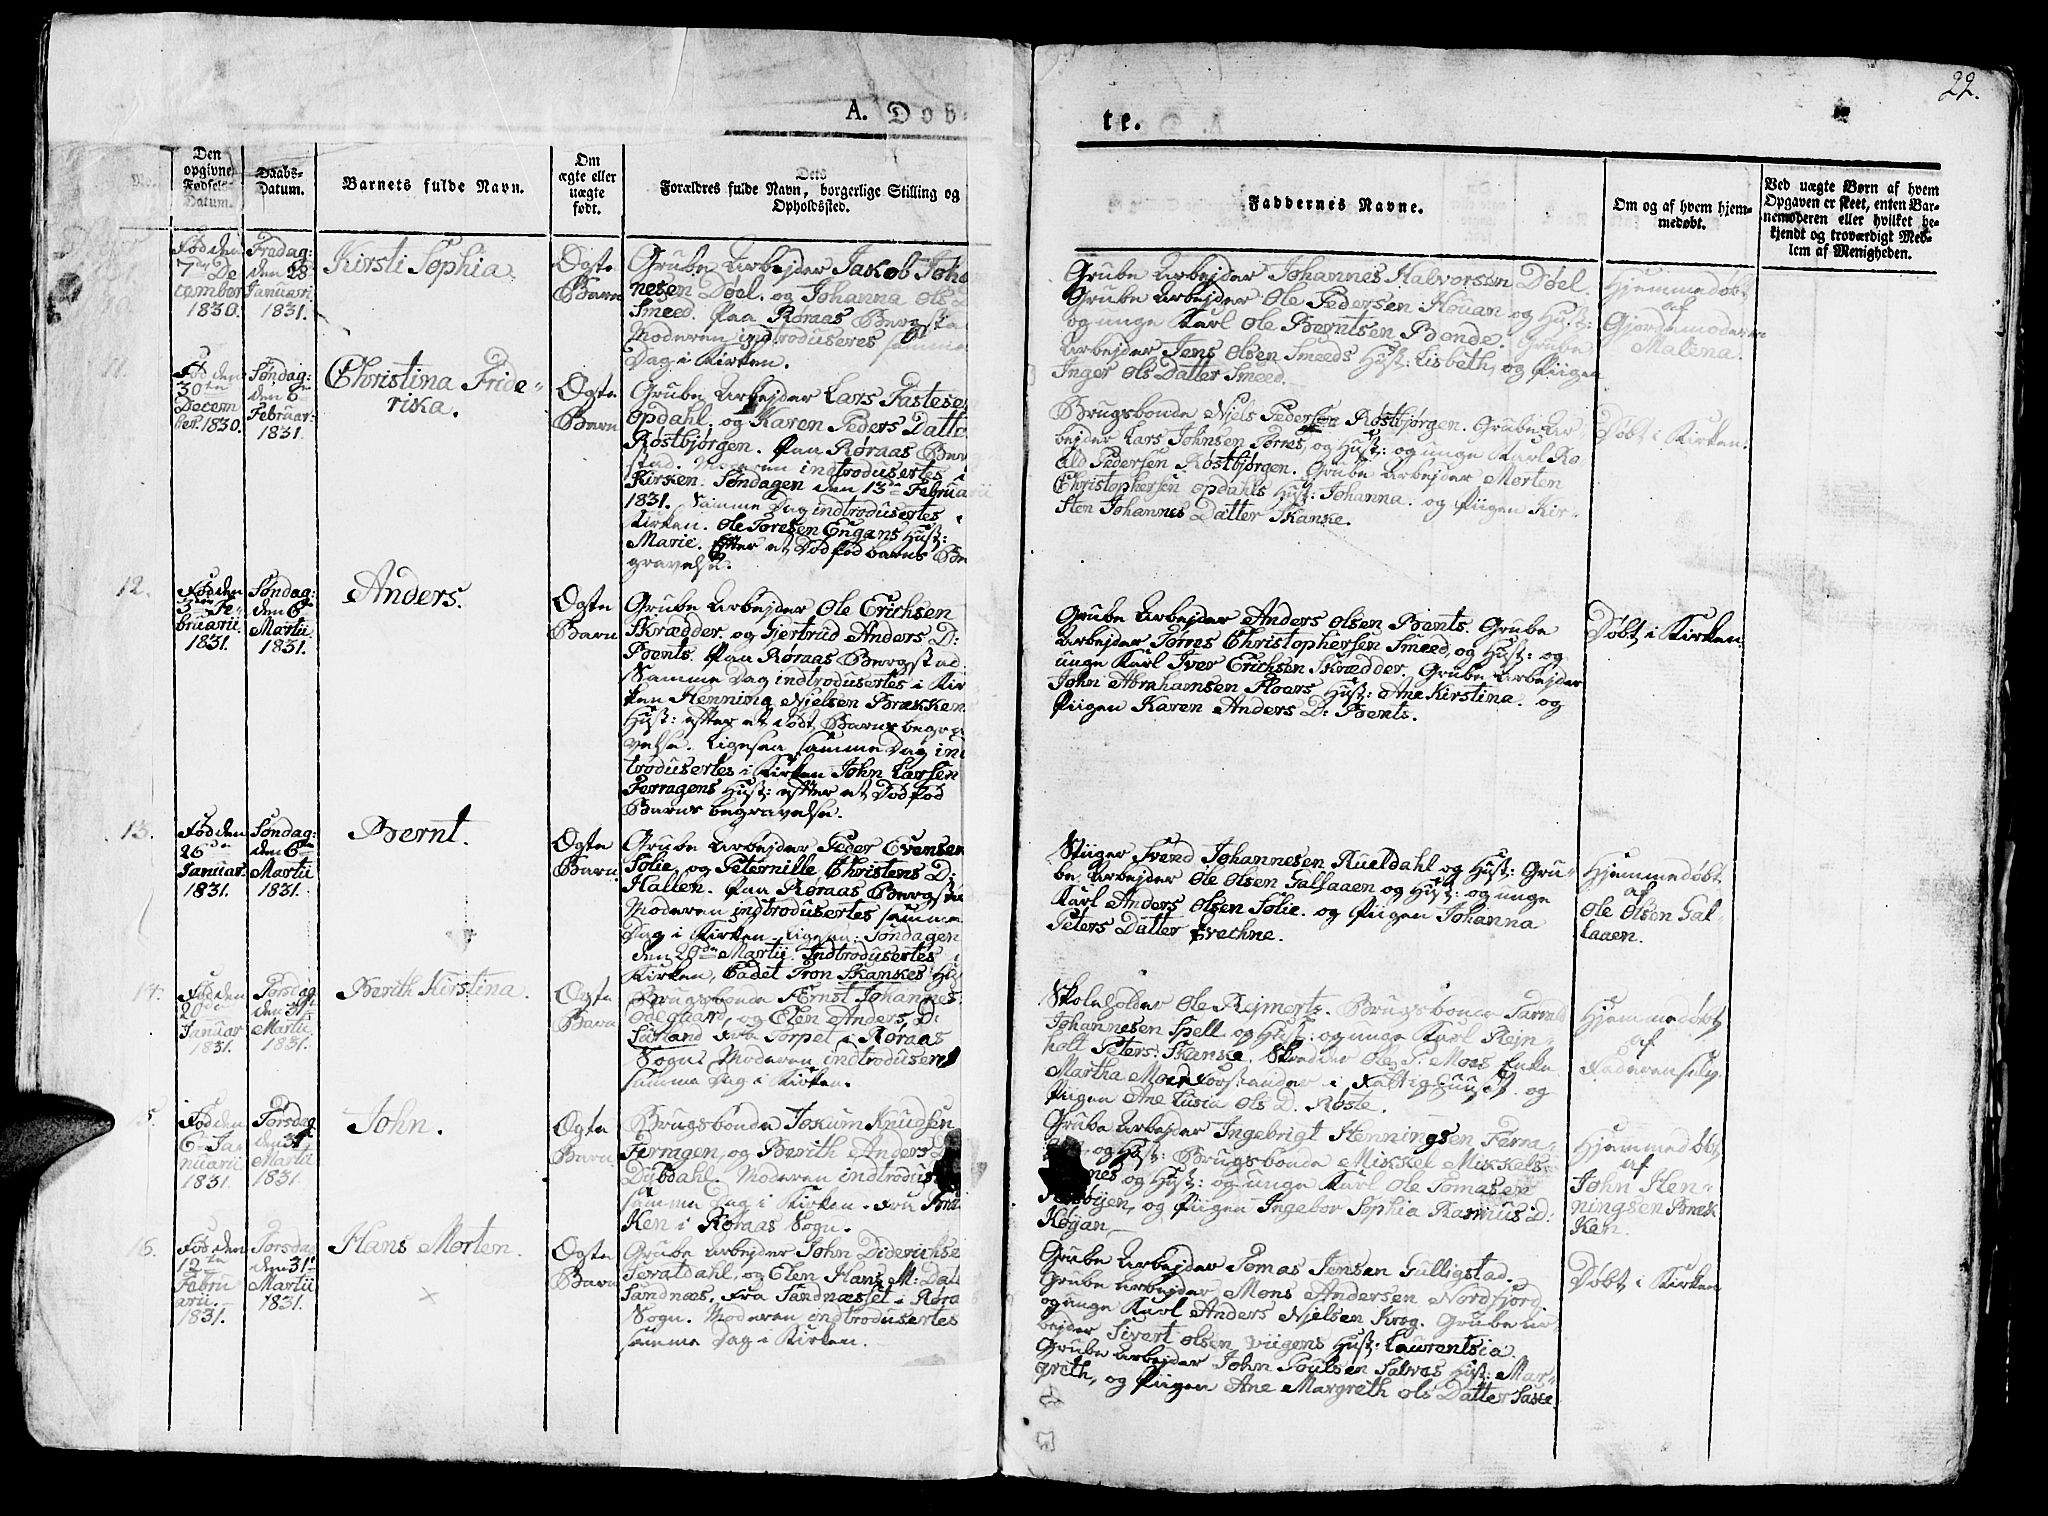 22.
A. Døb-
te.
No.
Den opgivne Fødsels-Datum.
Daabs-Datum.
Barnets fulde Navn.
Om ægte eller uægte født.
Dets Forældres fulde Navn, borgerlige Stilling og Opholdssted.
Faddernes Navne.
Om og af hvem hjemmedøbt.
Ved uægte Børn af hvem Opgaven er skeet, enten Barnemoderen eller hvilket bekjendt og troværdigt Medlem af Menigheden.
Fød den
7de De
cember
1830.
Fredag:
den 28
Januarii
1831.
Kirsti Sophia.
Ægte
Barn
Grube Arbejder Jakob Joha
nesen Døel. og Johanna Ols D
Smeed. Paa Røraas Bergsta
Moderen indtroduseres samme
Dag i Kirken.
Grube Arbejder Johannes Halvorsen Døel.
Grube Arbejder Ole Pedersen Houan og Hust:
og unge Karl Ole Berntsen Bonde. Grube
Arbejder Jens Olsen Smeeds Hust: Lisbeth, og Piigen
Inger Ols Datter Smeed.
Hjemmedøbt
af
Gjordemoderen
Malena.
11.
Fød den
30te
Decem
ber. 1830.
Søndag:
den 6te
Februar:
1831.
Christina Fride-
rika.
Ægte
Barn
Grube Arbejder Lars Fastesen
Opdahl. og Karen Peders Datter
Røstbjørgen. Paa Røraas Berg
stad. Moderen indtrodusertes i
Kirken. Søndagen den 13de Februarii
1831. Samme Dag indtrodusertes i
Kirken. Ole Toresen Engans Hust:
Marie. Efter et Dødfød barns Be
gravelse.
Brugsbonde Njels Pedersen Røstbjørgen. Grube Ar
bejder Lars Johnsen Tørres, og Hust: og unge Karl Ro
ald Pedersen Røstbjørgen. Grube Arbejder Morten
Christophersen Opdahls Hust: Johanna. og Piigen Kir-
sten Johannes Datter Skanke.
Døbt i Kirken.
12.
Fød den
3die Fe
bruarii
1831.
Søndag:
den 6te
Martii
1831.
Anders.
Ægte
Barn
Grube Arbejder Ole Erichsen
Skrædder. og Gjertrud Anders D:
Bents. Paa Røraas Bergstad.
Samme Dag indtrodusertes i Kir
ken Henning Njelsen Brækken
Hust: efter et dødt Barns begra
velse. Ligesaa samme Dag in
troduserttes i Kirken John Larsen
Ferragens Hust: efter et Dødfød
Barns begravelse.
Grube Arbejder Anders Olsen Bents. Grube
Arbejder Tørres Christophersen Smeed, og Hust: og
unge Karl Iver Erichsen Skrædder. Grube Arbejder
John Abrahamsen Floers Hust: Ane Kirstina. og
Piigen Karen Anders D: Bents.
Døbt i Kirken.
13.
Fød den
26de
Januar.
1831.
Søndag:
den 6te
Martii
1831.
Bernt.
Ægte
Barn.
Grube Arbejder Peder Evensen
Solie, og Peternille Christens D:
Hallen. Paa Røraas Bergstad.
Moderen indtrodusertes samme
Dag i Kirken. Ligesaa: Søndagen
den 20de Martii. Indtrodusertes i
Kirken, Cadet Tron Skanskes Hu
Stiiger Svend Johannesen Rueldahl og Hust: Gru-
be Arbejder Ole Olsen Gallaaen og Hust: og unge
Karl Anders Olsen Solie. og Piigen Johanna
Peters Datter Evechne.
Hjemmedøbt
af
Ole Olsen Gal-
laaen.
14.
Fød den
20de
Januar
1831.
Torsdag
den 31te
Martii
1831.
Berith Kirstina.
Ægte
Barn
Brugsbonde Ernst Johannes.
Odegaard, og Elen Anders D:
Surland fra Torpel i Røraas
Sogn. Moderen indtroduseret
samme Dag i Kirken.
Skoleholder Ole Rejmerts. Brugsbonde Tarrald
Johannesen Spell og Hust: og unge Karl Rejn-
holt Peters: Skanke. Skrædder Ole P. Moes Enke
Martha Moe Forstander i Fattighuuset. og
Piigen Ane Lusia Ols D. Røste.
Hjemmedøbt
af
Faderen selv.
15.
Fød den
6te Ja
nuarii
1831.
Torsdag
den 31te
Martii
1831.
John.
Ægte
Barn
Brugsbonde Jokum Knudsen
Ferragen, og Berith Anders D
Dybdahl. Moderen indtrodus
samme Dag i Kirken. fra Bræk
ken i Røraas Sogn.
Grube Arbejder Ingebrigt Henningsen Ferra-
og Hust: Brugsbonde Mikkel Mikkels-
nes og Hust: og unge Karl Ole Tomasen
og Piigen Ingebor Sophia Rasmus D:
Køjan.
Hjemmedøbt
af
John Hen-
ningsen Bræk
ken.
16.
Fød den
12te
Febru
arii.
1831.
Torsdag
den 31te
Martii
1831.
Hans Morten.
Ægte
Barn
Grube Arbejder John Diderichse
Sevatdahl, og Elen Hans M: Datt
Sandnæs, fra Sandnæsset i Røra
Sogn. Moderen indtrodusertes
samme Dag i Kirken.
Grube Arbejder Tomas Jensen Gulligstad.
Grube Arbejder Mons Andersen Nordfjord.
og unge Karl Anders Njelsen Krog. Grube Ar-
bejder Sivert Olsen Viigens Hust: Laurentsia.
Grube Arbejder John Poulsen Salvas Hust: Mar-
grith, og Piigen Ane Margreth Ols Datter Sasse.
Døbt i Kirken